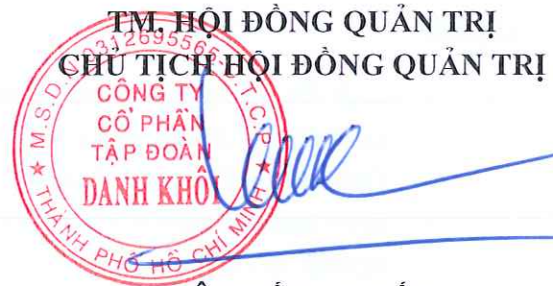 TM. HỘI ĐỒNG QUẢN TRỊ
CHỦ TỊCH HỘI ĐỒNG QUẢN TRỊ
M.S.D.N:0312695565-C.T.C.P
CÔNG TY
CỔ PHẦN
TẬP ĐOÀN
DANH KHÔI
THÀNH PHỐ HỒ CHÍ MINH